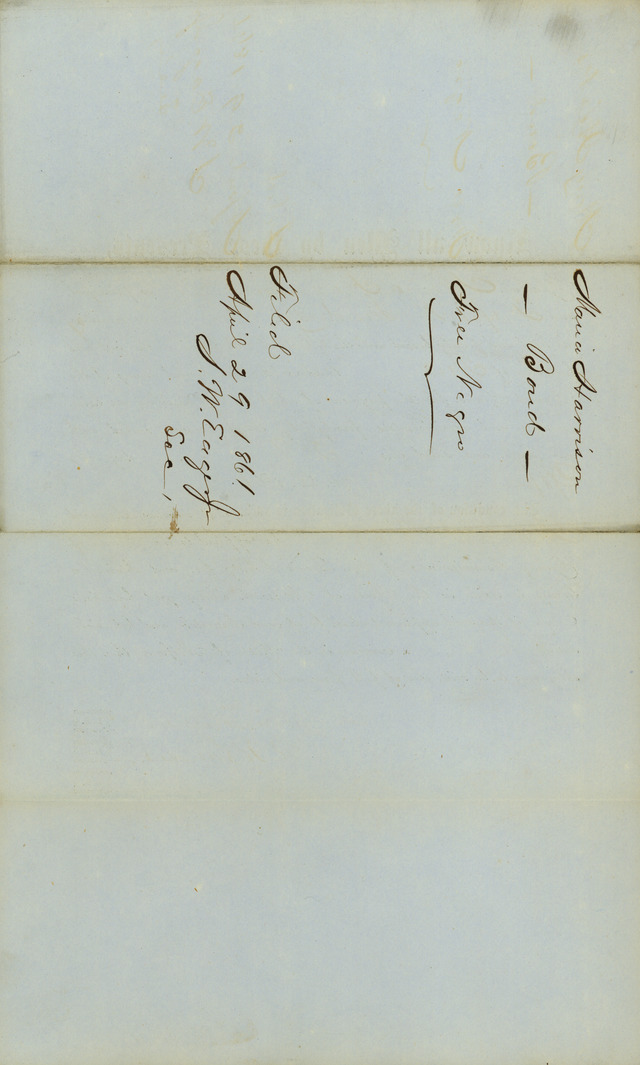 Maria Harrison
— Bond —
Free Negro
Filed
April 29 1861.
S. W. Eager Jr
Sec,